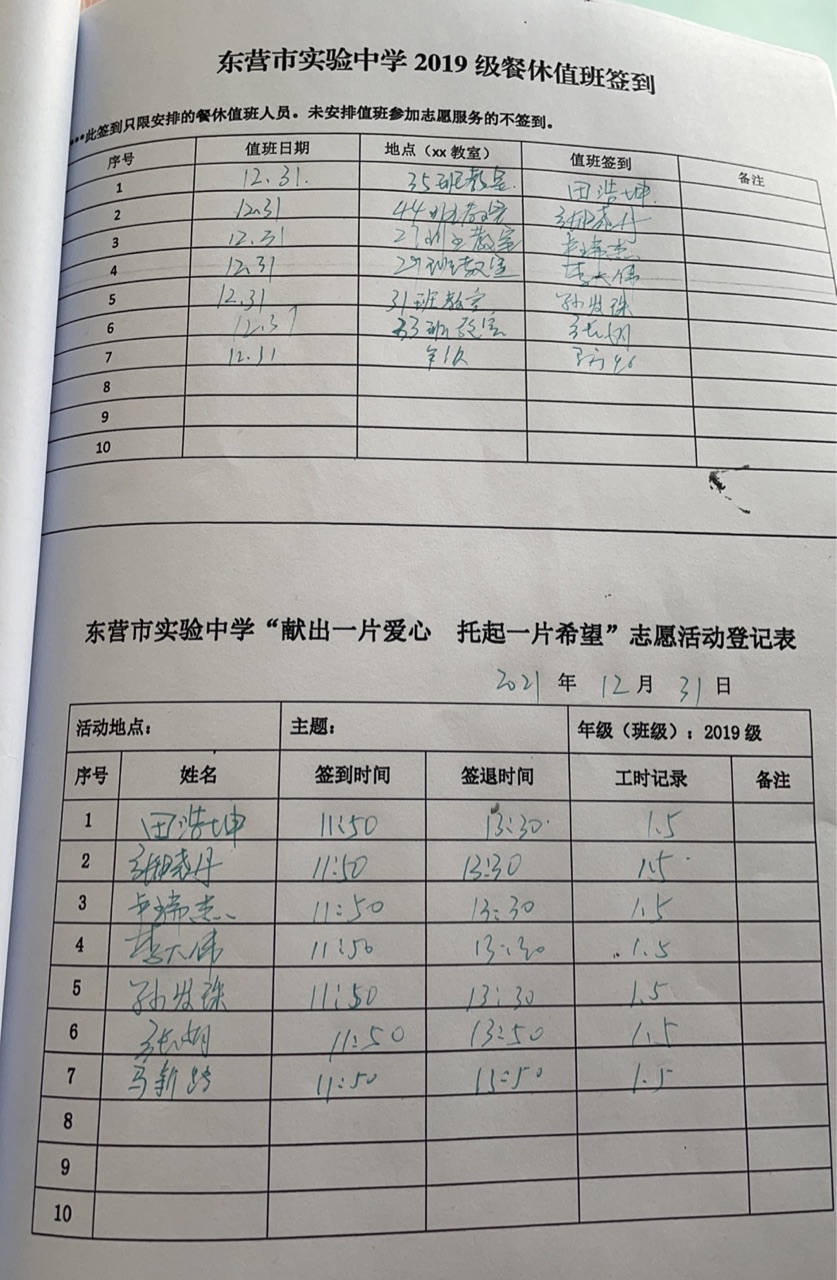 东营市实验中学 2019 级餐休值班签到
***此签到只限安排的餐休值班人员。未安排值班参加志愿服务的不签到。
序号 值班日期 地点（xx 教室） 值班签到 备注
1 12.31. 35班教室. 田浩坤
2 12.31 44班教室
3 12.31 27班教室
4 12.31 29班教室 李大伟
5 12.31 31班教室 孙发珠
6 12.31 33班教室
7 12.31
8
9
10
东营市实验中学“献出一片爱心 托起一片希望”志愿活动登记表
2021 年 12 月 31 日
活动地点： 主题： 年级（班级）：2019 级
序号 姓名 签到时间 签退时间 工时记录 备注
1 田浩坤 11:50 13:30 1.5
2 11:50 13:30 1.5
3 11:50 13:30 1.5
4 李大伟 11:50 13:30 1.5
5 孙发珠 11:50 13:30 1.5
6 11:50 13:50 1.5
7 11:50 13:50 1.5
8
9
10